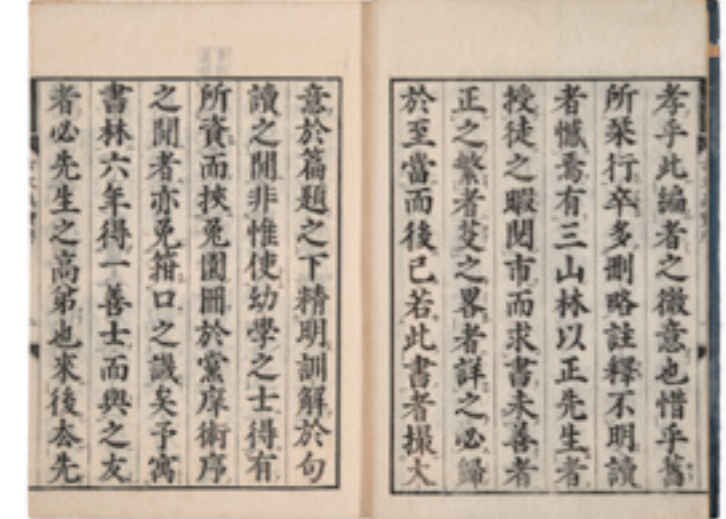 孝乎此編者之微意也惜乎舊
所栞行卒多刪略註釋不明讀
者憾焉有三山林以正先生者
授徒之暇閱市而求書未善者
正之繁者芟之畧者詳之必歸
於至當而後已若此書者撮大
意於篇題之下精明訓解於句
讀之閒非惟使幼學之士得有
所資而挾兔園冊於黨庠術序
之閒者亦免箝口之譏矣予寓
書林六年得一善士而與之友
者必先生之高弟也來後叅先